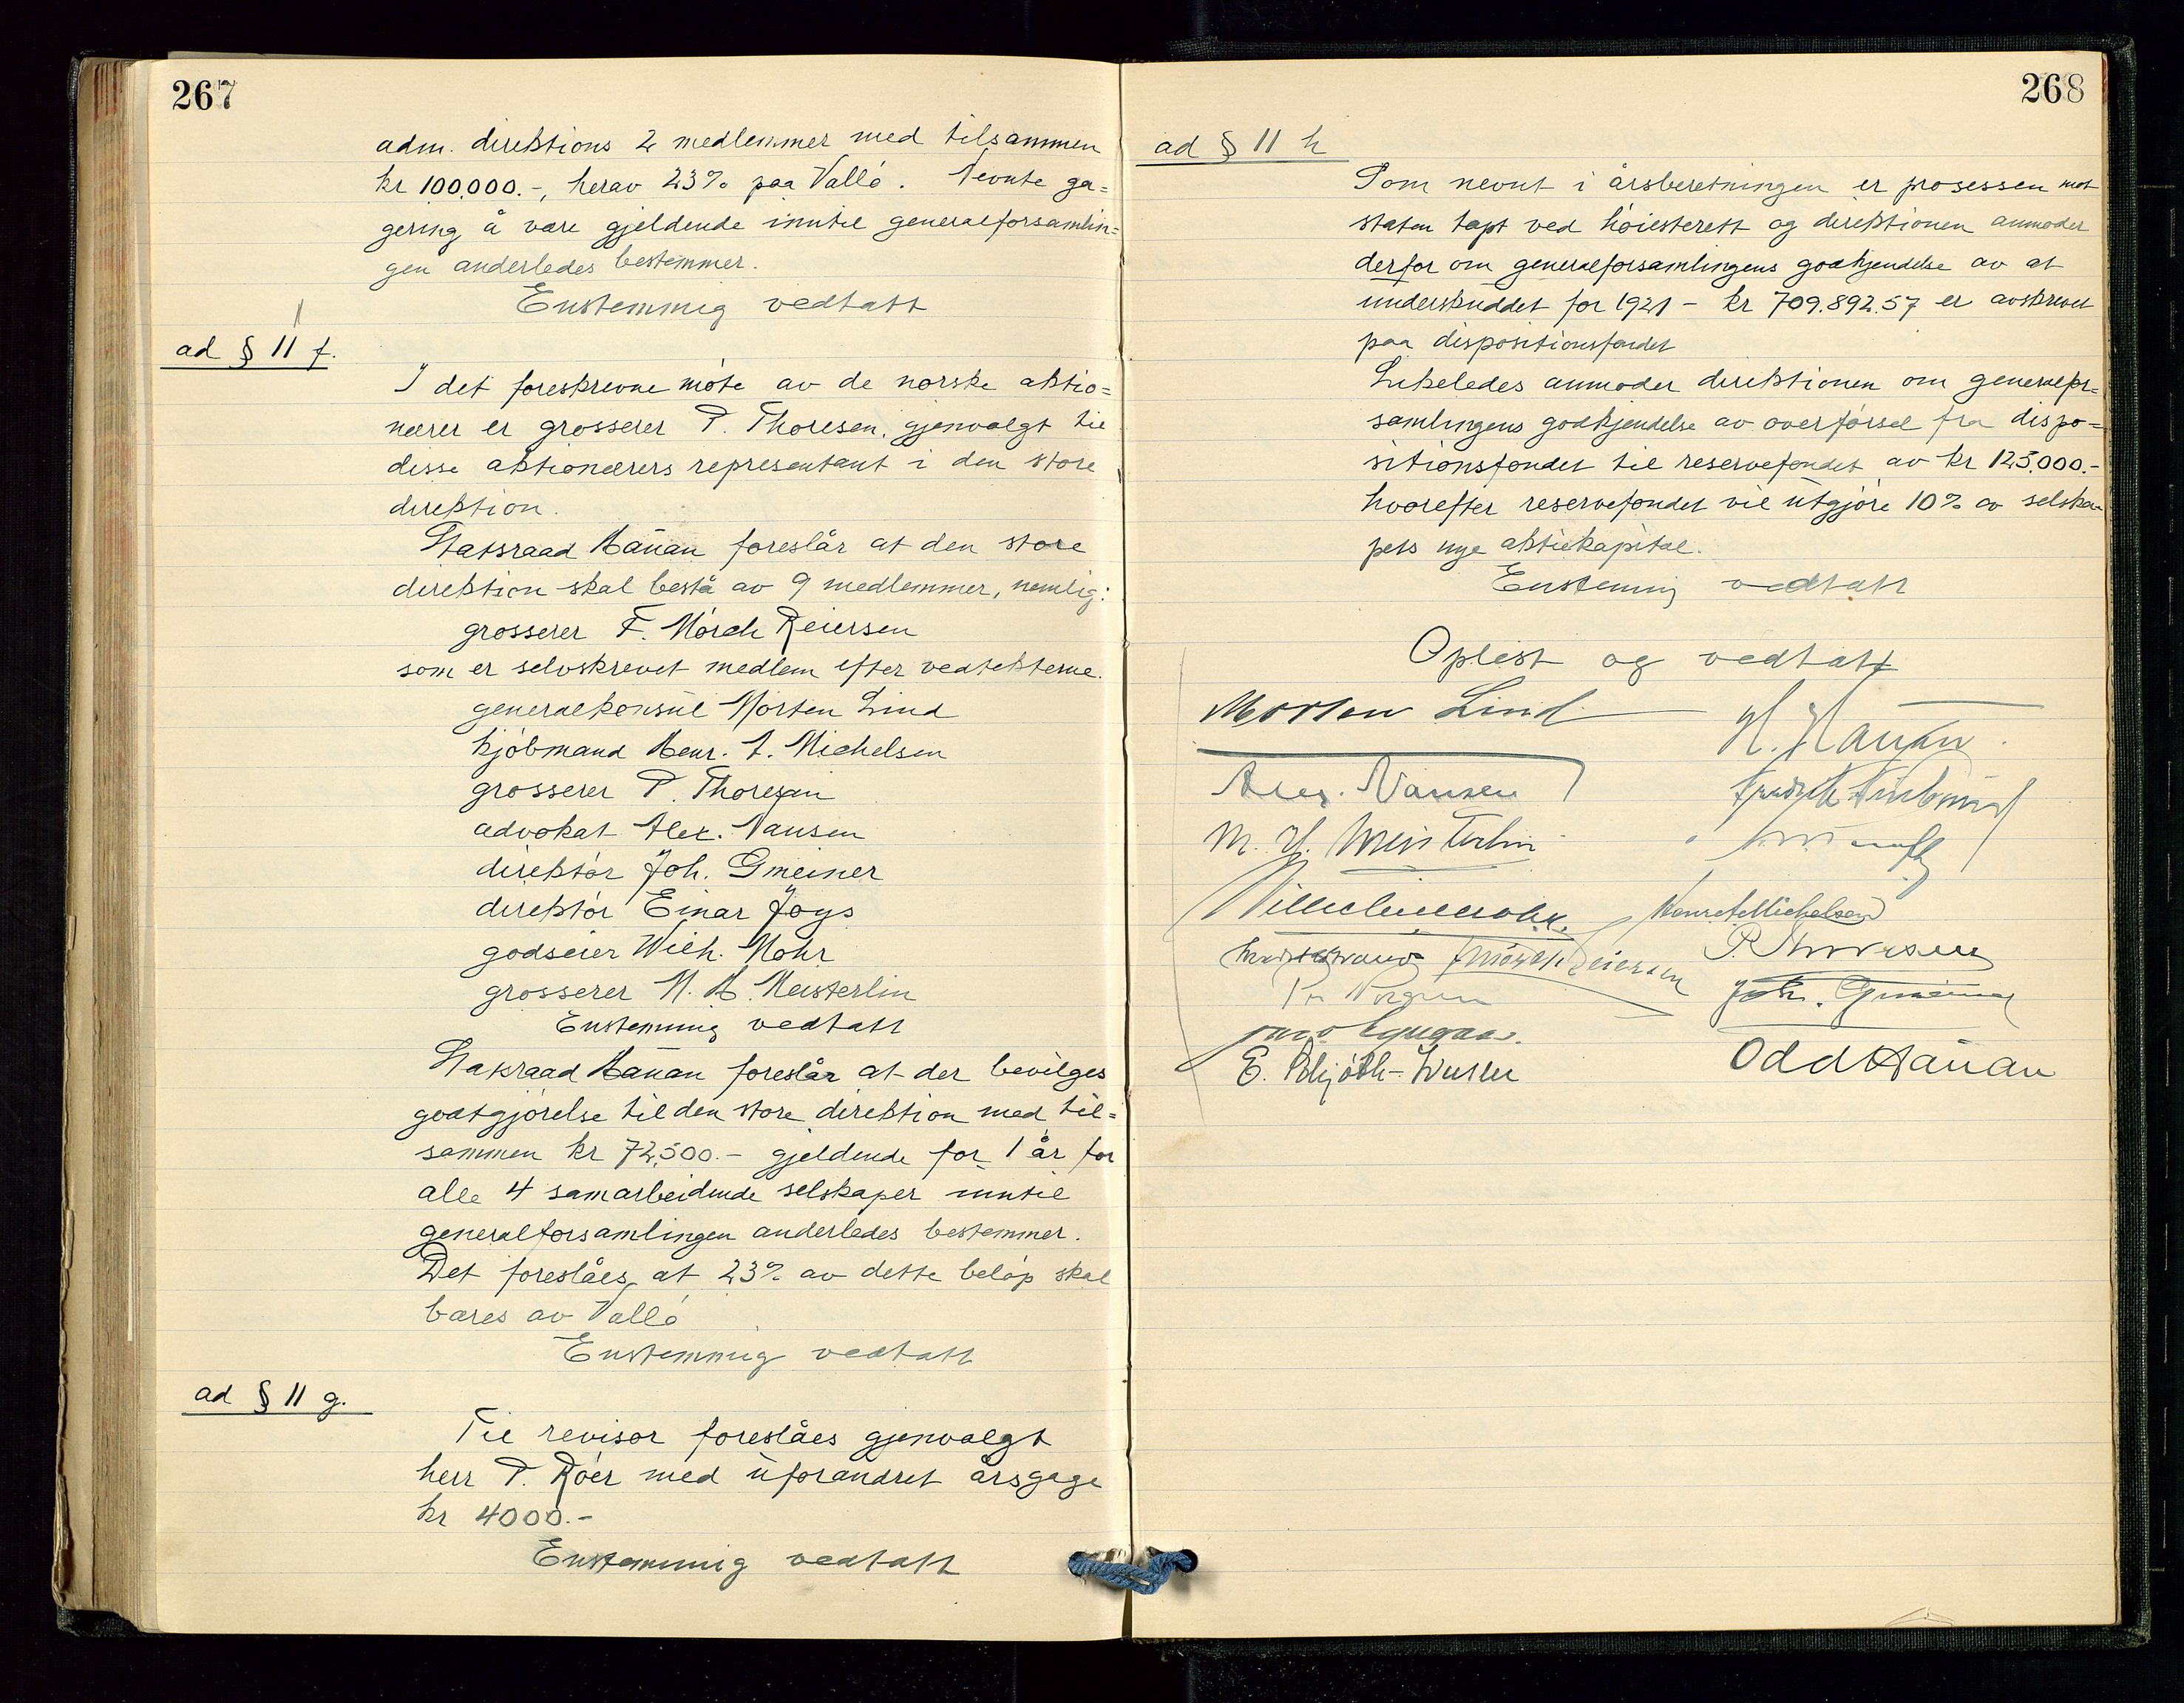 267
adm. direktions 2 medlemmer med tilsammen
kr 100.000.-, herav 23% paa Vallö. Nevnte ga=
gering å være gjeldende inntil generalforsamlin=
gen anderledes bestemmer.
Enstemmig vedtatt
ad § 11 f.
I det foreskrevne möte av de norske aktio=
nærer er grosserer P. Thoresen, gjenvalgt til
disse aktionærers representant i den store
direktion.
Statsraad Hauan foreslår at den store
direktion skal bestå av 9 medlemmer, nemlig:
grosserer F. Mörch Reiersen
som er selvskrevet medlem efter vedtekterne.
generalkonsul Morten Lind
kjöbmand Henr. A. Michelsen
grosserer P. Thoresen
advokat Alex. Nansen
direktör Joh. Gmeiner
direktör Einar Joys
godseier Wilh. Mohr
grosserer M. H. Meisterlin
Enstemmig vedtatt
Statsraad Hauan foreslår at der bevilges
godtgjörelse til den store direktion med til=
sammen kr 72.500.- gjeldende for 1 år for
alle 4 samarbeidende selskaper inntil
generalforsamlingen anderledes bestemmer.
Det foreslåes at 23% av dette belöp skal
bæres av Vallö
Enstemmig vedtatt
ad § 11 g.
Til revisor foreslåes gjenvalgt
herr P. Röer med uforandret årsgage
kr 4000.-
Enstemmig vedtatt
268
ad § 11 h
Som nevnt i årsberetningen er prosessen mot
staten tapt ved höiesterett og direktionen anmoder
derfor om generalforsamlingens godkjendelse av at
underskuddet for 1921 - kr 709.892.57 er avskrevet
paa dispositionsfondet
Likeledes anmoder direktionen om generalfor=
samlingens godkjendelse av overförsel fra dispo=
sitionsfondet til reservefondet av kr 125.000.-
hvorefter reservefondet vil utgjöre 10% av selska=
pets nye aktiekapital.
Enstemmig vedtatt
Oplest og vedtatt
Morten Lind
H. Hauan
Alex. Nansen
M. H. Meisterlin
Henr A Michelsen
Mörch Reiersen
P. Thoresen
Joh. Gmeiner
E. Schjöth-
Odd Hauan